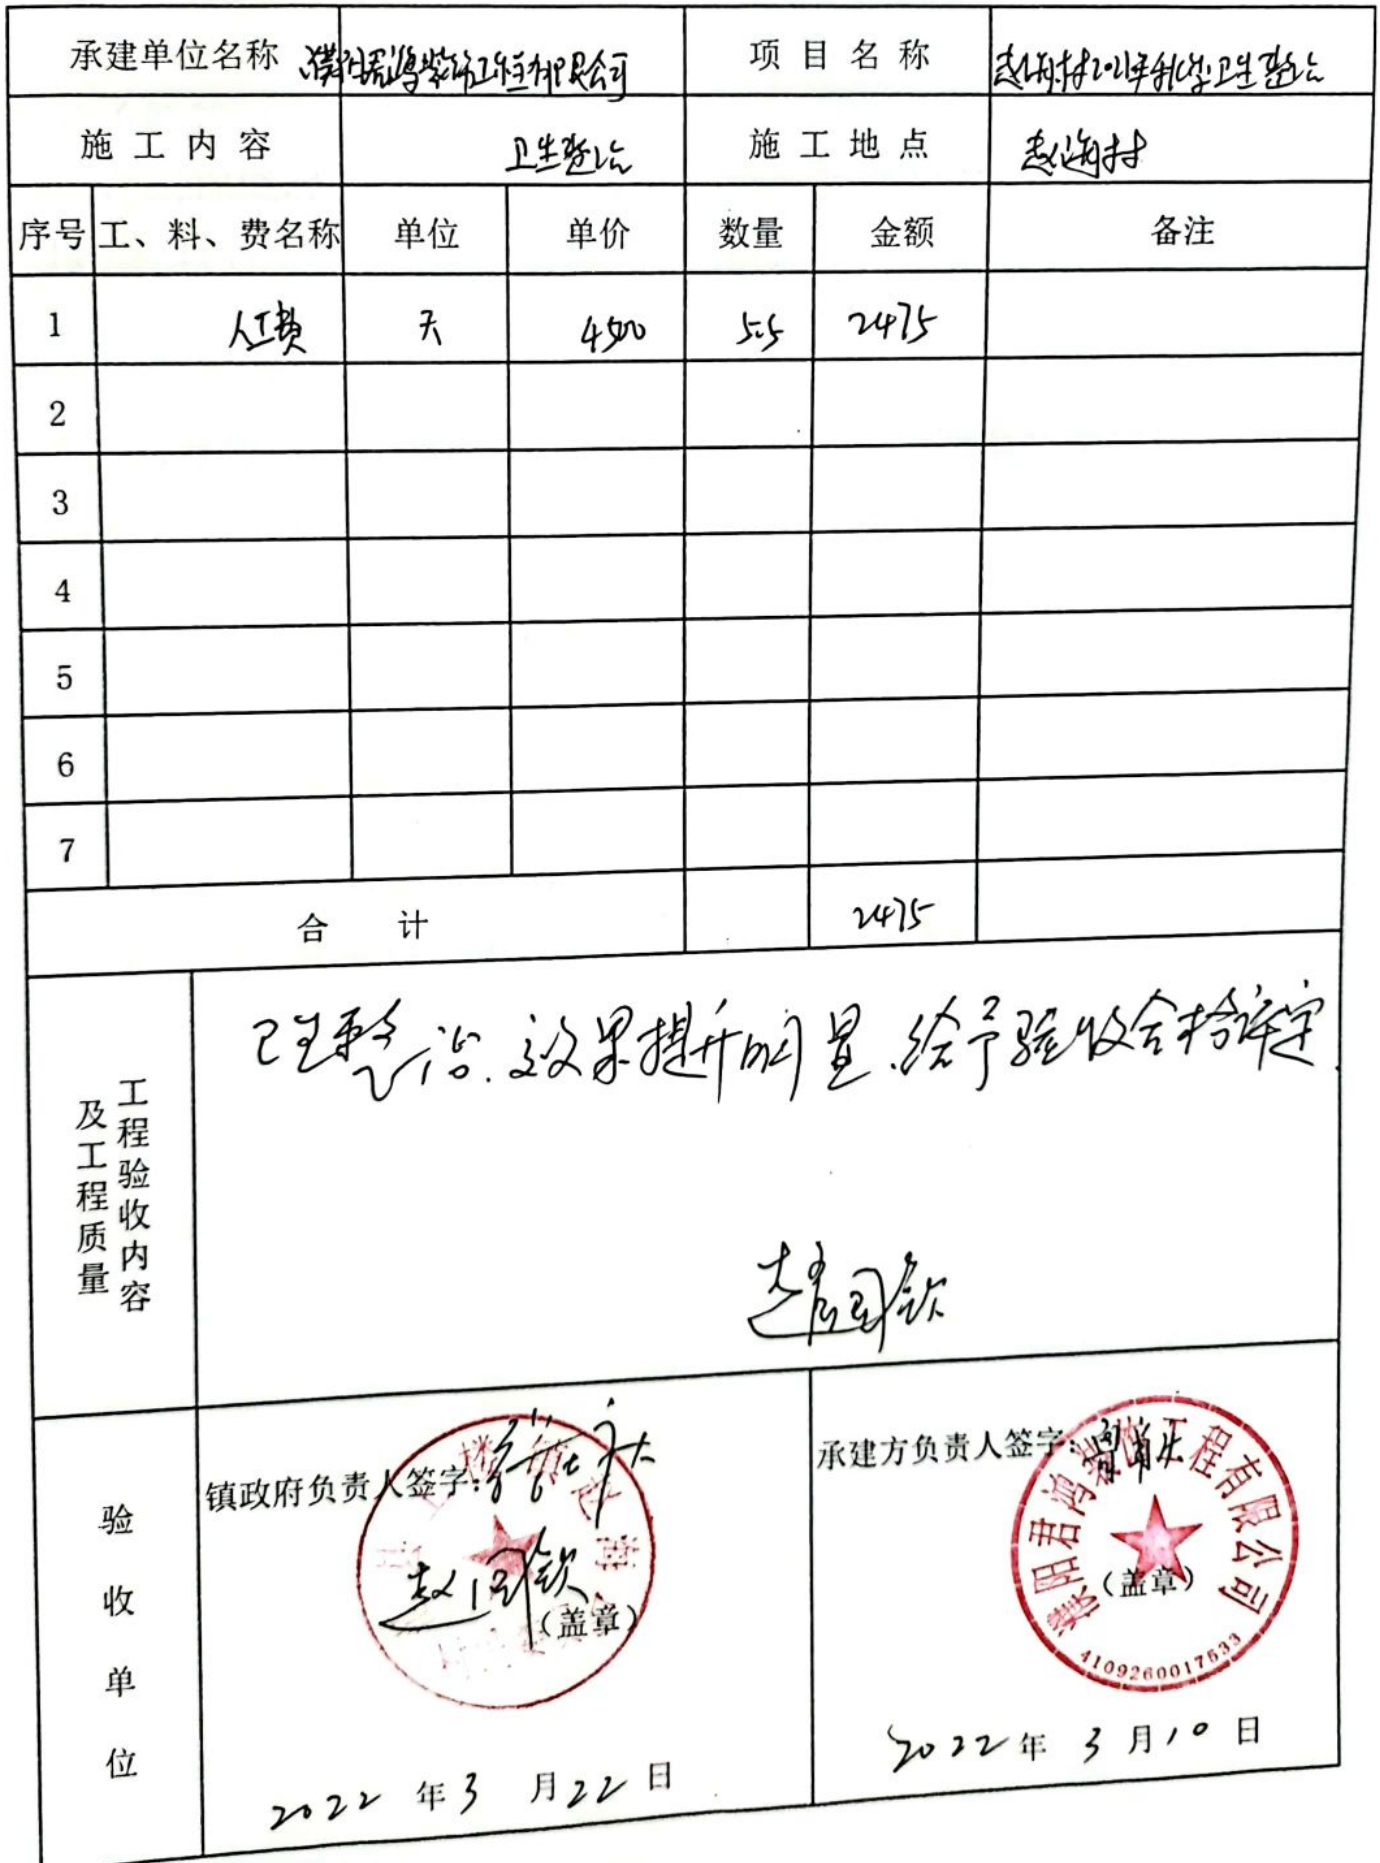 承建单位名称 濮阳君鸿装饰工程有限公司 项目名称 赵海村2021年 卫生整治
施工内容 卫生整治 施工地点 赵海村
序号 工、料、费名称 单位 单价 数量 金额 备注
1 人工费 天 4500 5.5 2475
2
3
4
5
6
7
合计 2475
工程验收内容
及工程质量
卫生整治.效果提升明显.给予验收合格评定.
赵国钦
验收单位
镇政府负责人签字:
赵国钦
(盖章)
2022年3月22日
承建方负责人签字:
濮阳君鸿装饰工程有限公司
(盖章)
4109260017533
2022年3月10日